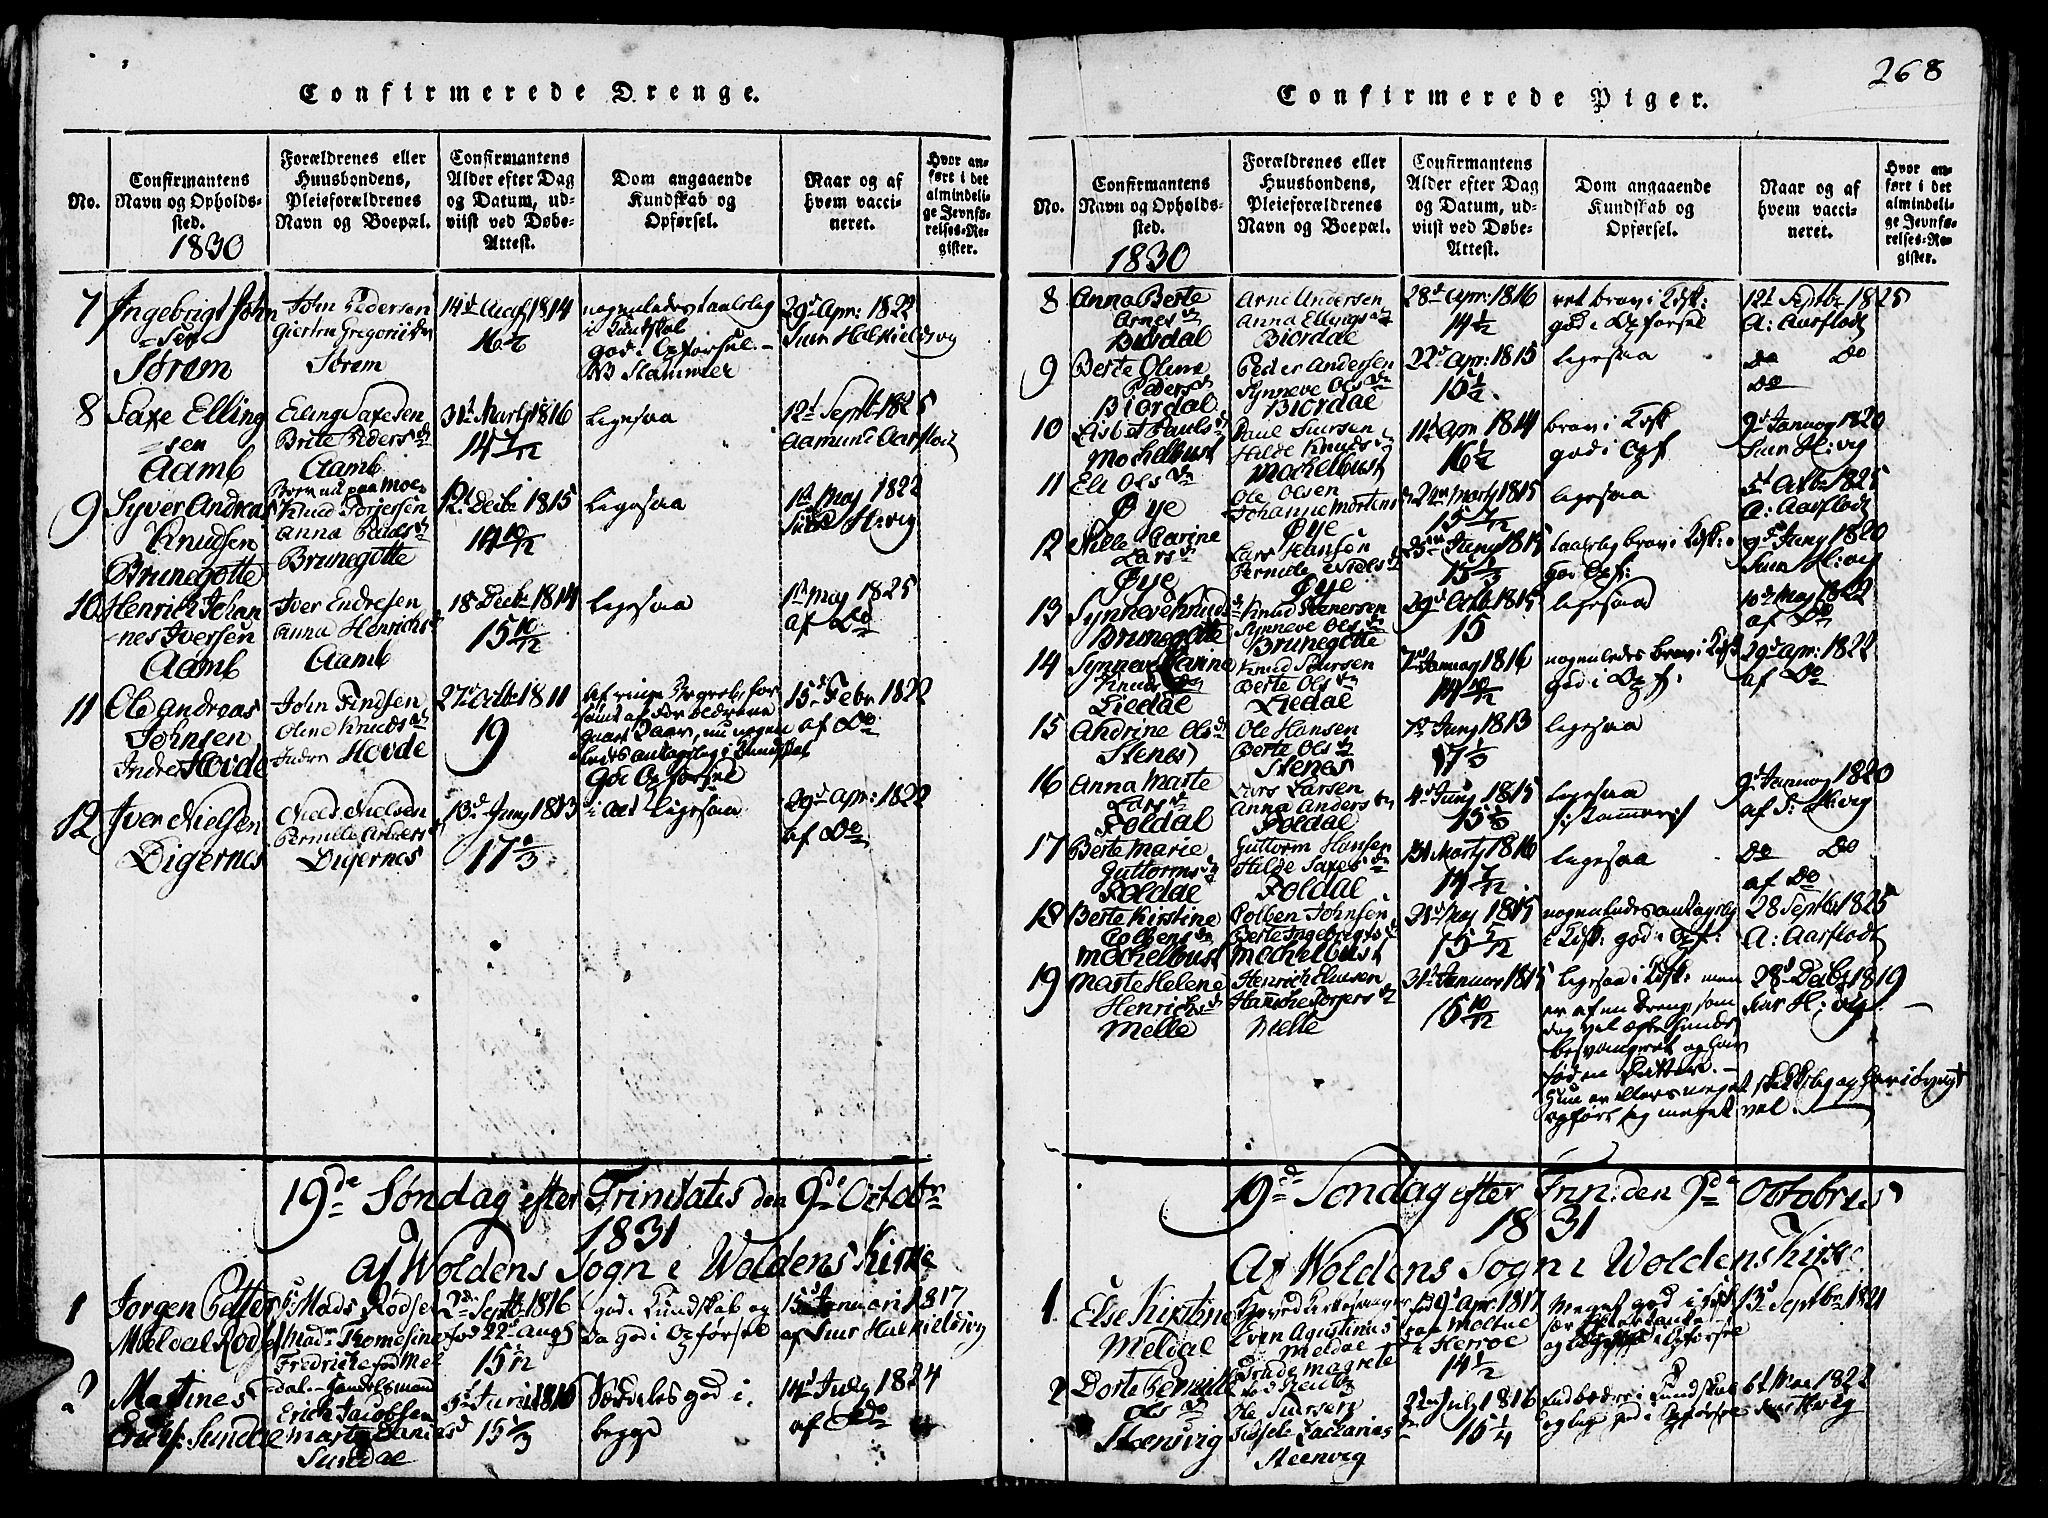 268
Confirmerede Drenge.
No.
Confirmantens Navn og Opholds-
sted.
1830
Forældrenes eller
Huusbondens,
Pleieforældrenes
Navn og Boepæl.
Confirmantens
Alder efter Dag
og Datum, ud-
viist ved Døbe-
Attest.
Dom angaaende
Kundskab og
Opførsel.
Naar og af
hvem vacci-
neret.
Hvor an-
ført i det
almindeli-
ge Jevnfø-
relses-Re-
gister.
7 Ingebrigt John
-sen
Sørem
John Pedersen
Giertru Gregorii
Sørem
14d Aug 1814
16
nogenledes taalelig
i Kundskab
god i Opførsel.-
NB Stammer
29d Apr: 1822
Suur Halkieldsvig
8 Saxe Elling
sen
Aamb
Elling Saxesen
Brite Peders dr
Aamb
31t Marty 1816
14 7/12
ligesaa
12t Septbr 1825
Aamund Aarflodt
9 Syver Andreas
Knudsen
Brunegotte
Knud
Anna
Brunegotte
12t Decbr 1815
14 10/12
ligesaa
1st May 1822
10 Henrich Johan
-nes Iversen
Aamb
Iver Endresen
Anna Henrichs
Aamb
18 Decbr 1814
15 10/12
ligesaa
1st May 1825
af Do
11 Ole Andreas
Johnsen
Indre Hovde
John Findsen
Oline Knuds dr
Indre Hovde
27d Octbr 1811
19
God Opførsel
15d Febr 1822
af Do
12 Iver Nielsen
Digernes
Niels Nielsen
Pernille
Digernes
13d Juny 1813
17
i alt ligesaa
29d Apr: 1822
af Do
19de Søndag efter Trinitatis den 9de Octobr
1831
Af Woldens Sogn i Woldens Kirke
1 Jorgen Petter
Meldal Rodset
Mads Rodset
Madm Thomesine
Fredricke fød Mel
dal.- Handelsmand
2d Septbr 1816
fød 22d Aug
15 1/12
god i Kundskab og
god i Opførsel
15d Januari 1817
af Suur Halkieldsvig
2 Martines
Erichs: Sundal
Erich Jacobsen
Marte Danies d
Sundal
5d Juni 1816
15 1/3
Særdeles god i
begge
14d July 1824
af Do
Confirmerede Piger.
No.
Confirmantens
Navn og Opholds-
sted.
1830
Forældrenes eller
Huusbondens,
Pleieforældrenes
Navn og Boepæl.
Confirmantens
Alder efter Dag
og Datum, ud-
viist ved Døbe-
Attest.
Dom angaaende
Kundskab og
Opførsel.
Naar og af
hvem vacci-
neret.
Hvor an-
ført i det
almindeli-
ge Jevnfø-
relses-Re-
gister.
8 Anna Berte
Arnes dr
Biordal
Arne Andersen
Anna Ellings dr
Biordal
28d Apr: 1816
14 1/2
ret brav i Kdsk:
god i Opførsel
12t Septbr 1825
A: Aarflodt
9 Berte Oline
Peders dr
Biordal
Peder Andersen
Synneve Ols dr
Biordal
22d Apr: 1815
15 1/2
ligesaa
Do Do
Do
10 Lisbet Pauls dr
Mochelbust
Paul Siursen
Hilde Knuds dr
Mochelbust
11t Apr 1814
16 1/2
brav i Kdsk
god i Opf
9d Januar 1820
Suur H:vig
11 Eli Ols dr
Øye
Ole Olsen
Johanne Mortens
Øye
22n Marty 1815
15 7/12
ligesaa
5t Octbr 1825
A: Aarflodt
12 Nille Carine
Lars dr
Øye
Lars Hansen
Pernille Niels dr
Øye
23n Juny 1815
15 1/3
taalelig brav i Kdsk:
god Opf:
9d Juny 1820
Suur H:vig
13 Synneve Knuds dr
Brunegotte
Knud Stenersen
Synneve Ols dr
Brunegotte
29d Octbr 1815
15
ligesaa
10d May 1822
af Do
14 Synneve Karine
Knuds dr
Liedal
Knud Siursen
Berte Ols dr
Liedal
7d Januar 1816
14 10/12
nogenledes brav i Kdsk
god i Opf.
29d Apr: 1822
af Do
15 Andrine Ols dr
Stenes
Ole Hansen
Berte Ols dr
Stenes
7d Juny 1813
17 1/3
ligesaa
16 Anna Marte
Lars dr
Foldal
Lars Larsen
Anna Anders dr
Foldal
4d Juny 1815
15 1/3
ligesaa
9d Januar 1820
af S: H:vig
17 Berte Marie
Guttorms dr
Foldal
Guttorm Hansen
Hilde Saxes dr
Foldal
31 Marty 1816
14 7/12
ligesaa
Do Do
af Do
18 Berte Kirstine
Colbens dr
Mochelbust
Colben Johnsen
Berte Ingebrigts dr
Mochelbust
May 1815
15 5/12
nogenledes antagelig
i Kdsk: god i Opf:
28 Septbr 1825
A: Aarflodt
19 Marte Helene
Henrichs dr
Melle
Henrich Elusen
Hansiche Torgers dr
Melle
31t Januar 1815
15 10/12
ligesaa i Kdsk: men
er af en Dreng, som
besvangret og har
fød en Datter.-
Hun er ellers meget skikkelig og
opførs sig meget vel.
28d Decbr 1819
Suur H:vig
19de Søndag efter Trin: den 9de Octobris
1831
Af Woldens Sogn i Woldens Kirke
1. Else Kirstine
Meldal
Even Agustinus
Meldal
Trude Magrete
fød
fød 9d Apr: 1817
paa Moltue
i Herroe
14 1/2
Meget god i Kdsk
og i Opførsel
13d Septbr 1821
2 Dorte Pernille
Ols dr
Steenvig
Ole Siursen
Sissele Zacharias
dr
Steenvig
22n July 1816
15 1/4
end bedre i Kundskab
og lige god i Opførsel
6t Mai 1822
Suur H:vig